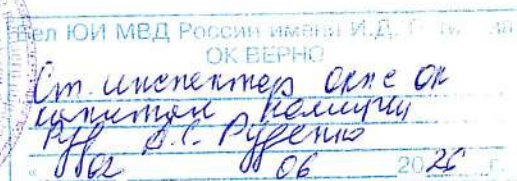 Бел ЮИ МВД России имени И.Д.
ОК ВЕРНО
Ст. инспектор
капитан полиции
В.С. Руденко
« 02 06 2026 г.